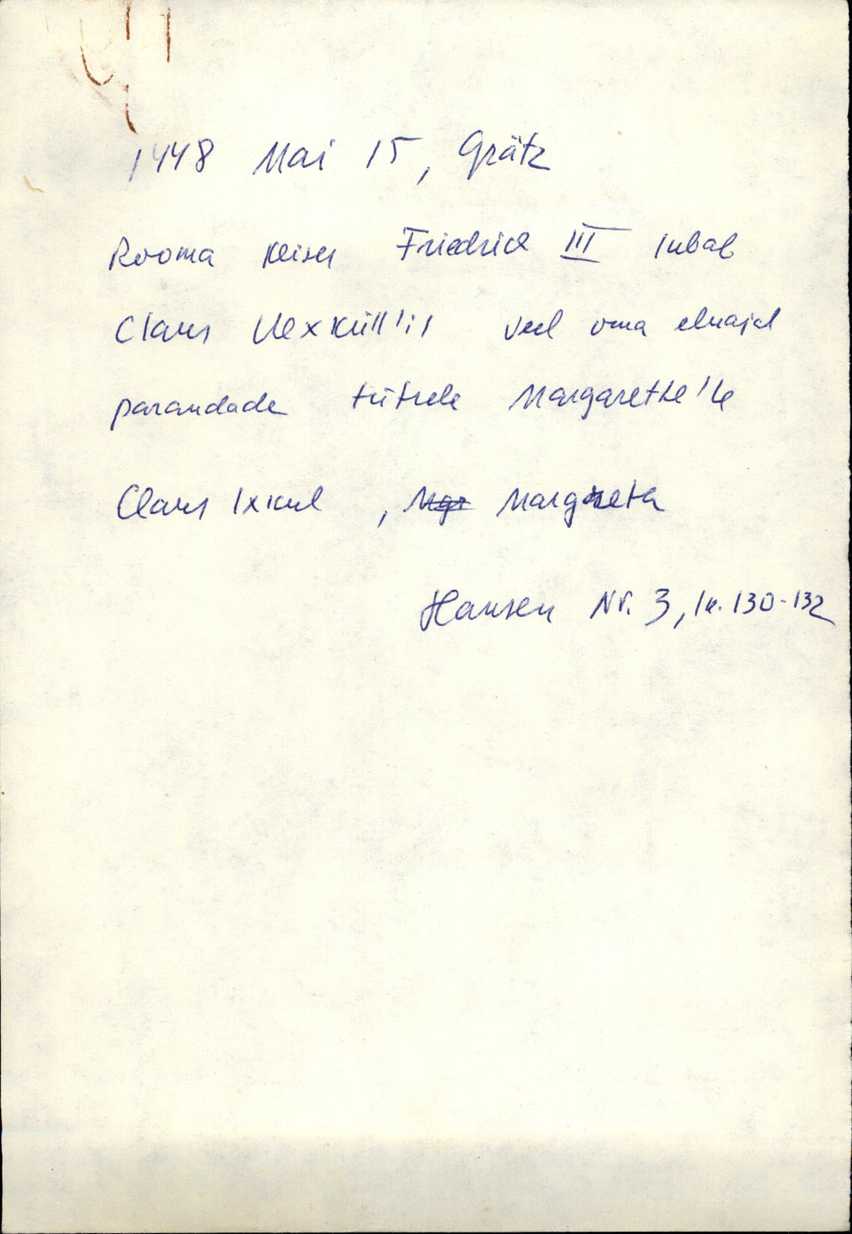 1448 Mai 15, Grätz
Rooma keiser Friedrich III lubab
Claus Uexküll'il veel oma eluajal
parandada tütrele Margarethe'le
Claus Ixkul , Mgr Margareta
Hansen Nr. 3, lk. 130-132